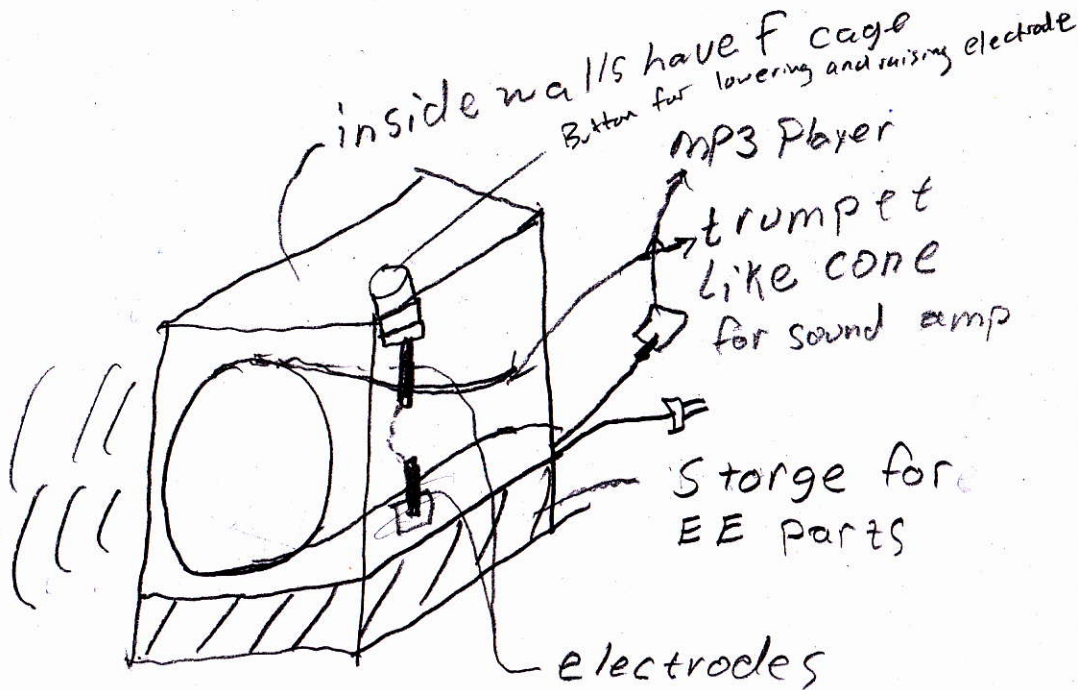 inside walls have F cage
Button for lowering and raising electrode
MP3 Player
trumpet
Like cone
for sound amp
Storge for
EE parts
electrodes